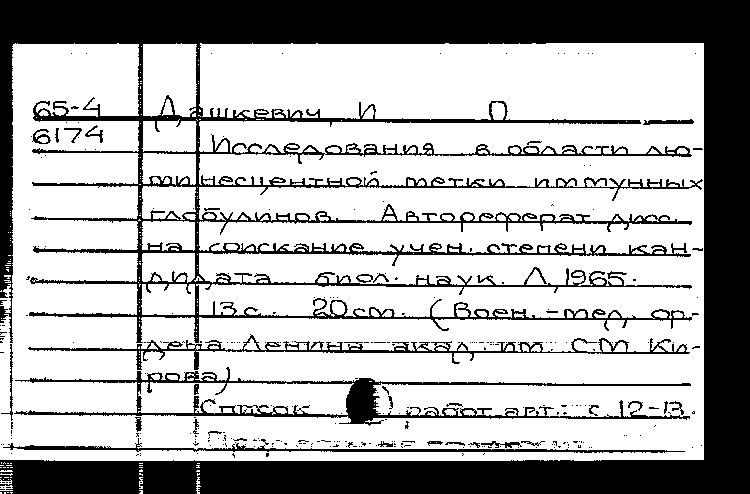 65-4 Дашкевич, И П
6174
Исследования в области лю-
минесцентной метки иммунных
глобулинов. Автореферат дисс.
на соискание учен. степени кан-
дидата биол. наук. Л., 1965.
13 с. 20 см. (Воен.-мед. ор-
дена Ленина акад. им. С.М. Ки-
рова).
Список работ авт.: с. 12-13.